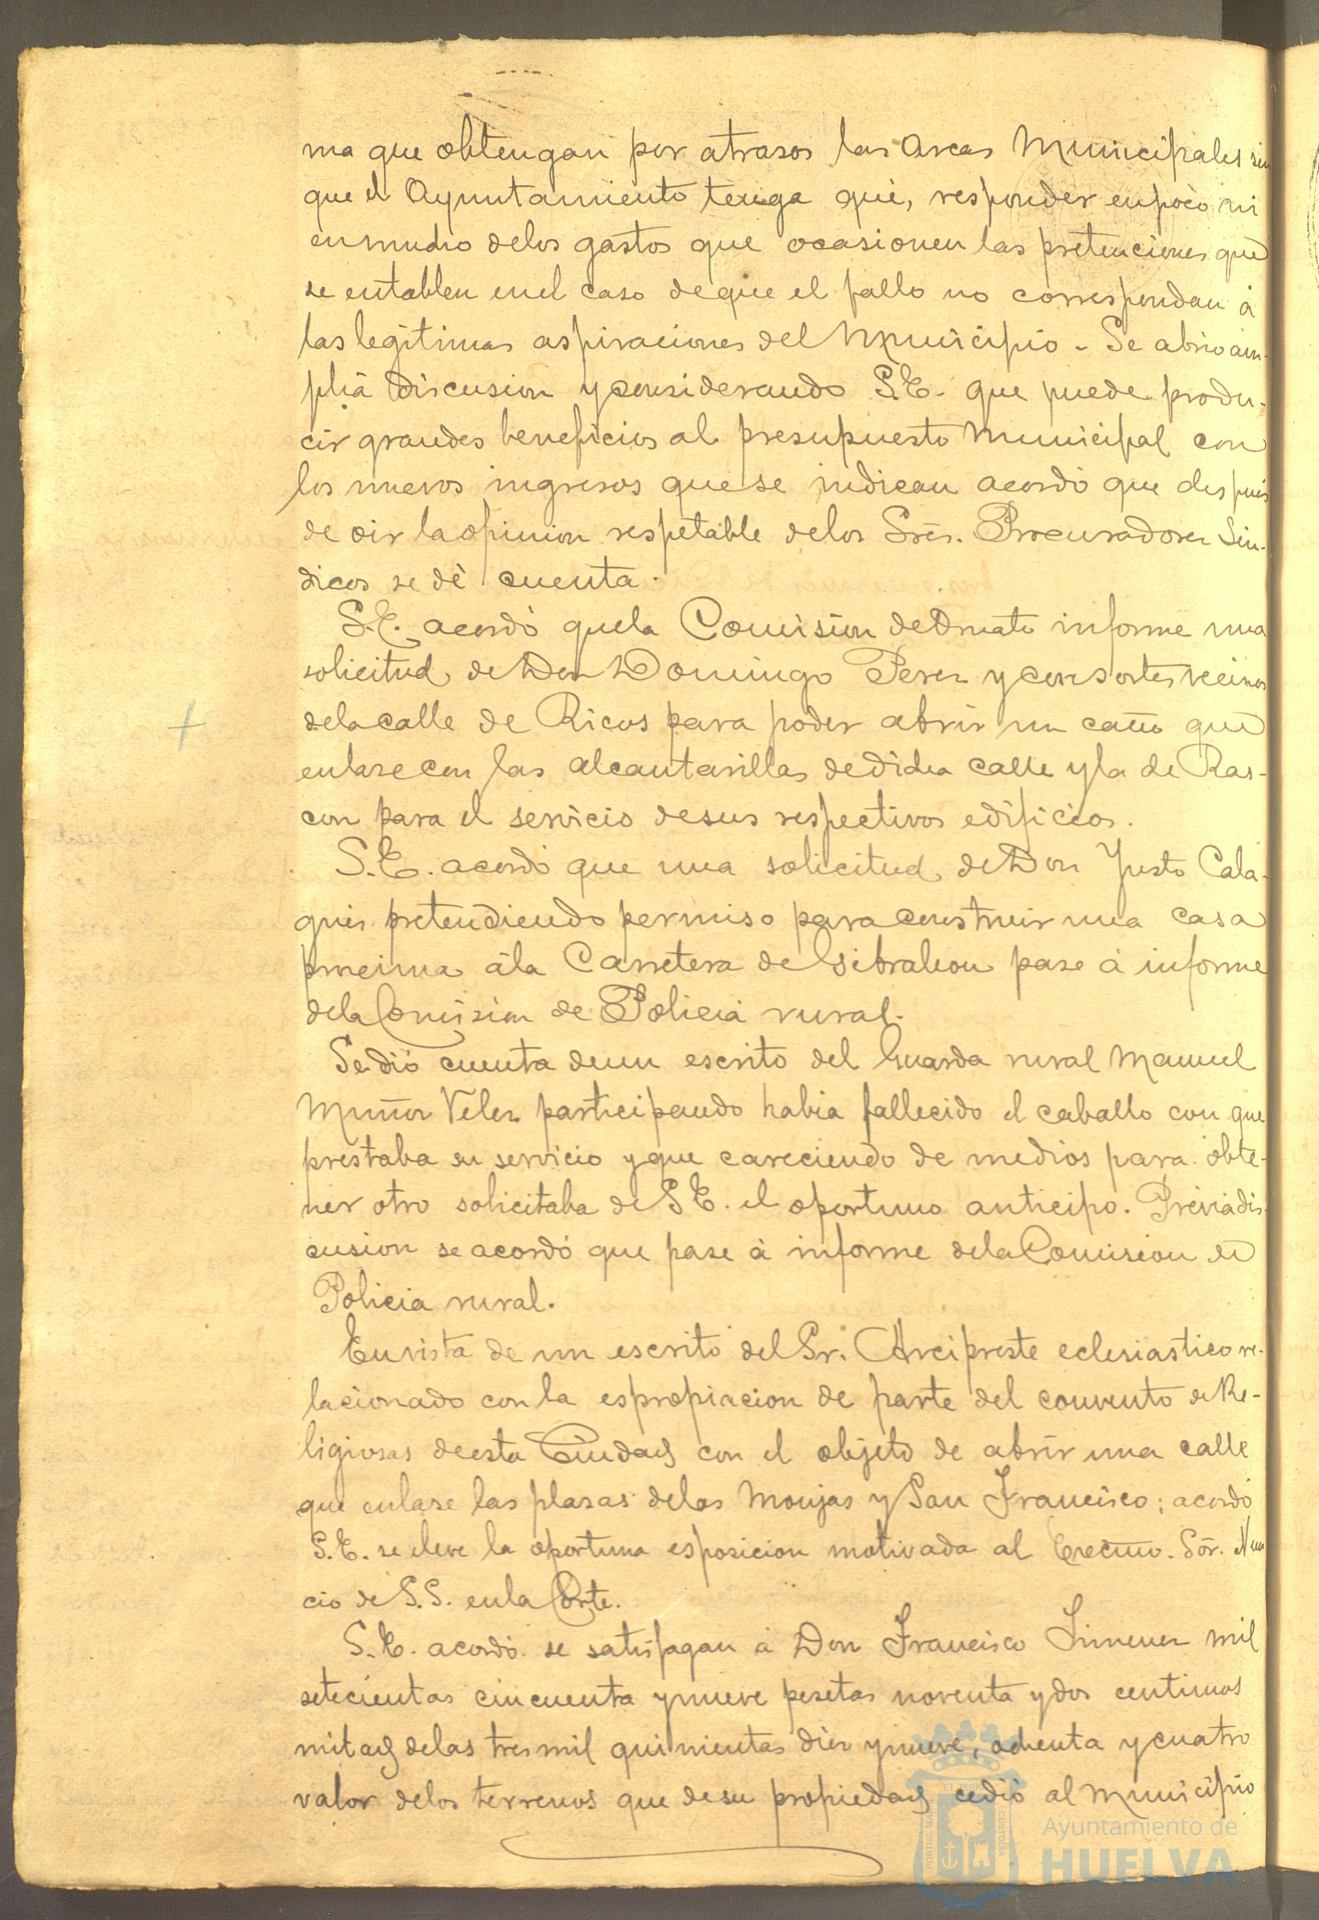 ma que obtengan por atrasos las arcas Municipales sin
que el Ayuntamiento tenga que, responder en poco ni
en mucho de los gastos que ocasionen las pretenciones que
se entablen en el caso de que el fallo no correspondan á
las legitimas aspiraciones del Municipio - Se abrio am-
plia discusion y considerando S.E. que puede produ-
cir grandes beneficios al presupuesto Municipal con
los nuevos ingresos que se indican acordó que despues
de oir la opinion respetable de los Sres. Procuradores Sin-
dicos se dé cuenta.
S.E. acordó que la Comision de Ornato informe una
solicitud de Don Domingo Perez y consortes vecinos
de la calle de Ricos para poder abrir un caño que
enlaze con las alcantarillas de dicha calle y la de Ras-
con para el servicio de sus respectivos edificios.
S.E. acordó que una solicitud de Don Justo Cala-
guis pretendiendo permiso para construir una casa
procima á la Carretera de Gibraleon pase á informe
de la Comision de Policia rural.
Se dió cuenta de un escrito del Guarda rural Manuel
Muñoz Velez participando habia fallecido el caballo con que
prestaba su servicio y que careciendo de medios para obte-
ner otro solicitaba de S.E. el oportuno anticipo. Previa dis-
cusion se acordó que pase á informe de la Comision de
Policia rural.
En vista de un escrito del Sr. Arcipreste eclesiastico re-
lacionado con la espropiacion de parte del convento de Re-
ligiosas de esta Ciudad con el objeto de abrir una calle
que enlaze las plazas de las Monjas y San Francisco; acordó
S.E. se eleve la oportuna esposicion motivada al Excmo. Sór. Nun
cio de S.S. en la Corte.
S.E. acordó se satisfagan á Don Francisco Jimenez mil
setecientas cincuenta y nueve pesetas noventa y dos centimos
mitad de las tres mil quinientas diez y nueve, ochenta y cuatro
valor de los terrenos que de su propiedad cedió al Municipio
Ayuntamiento de
HUELVA